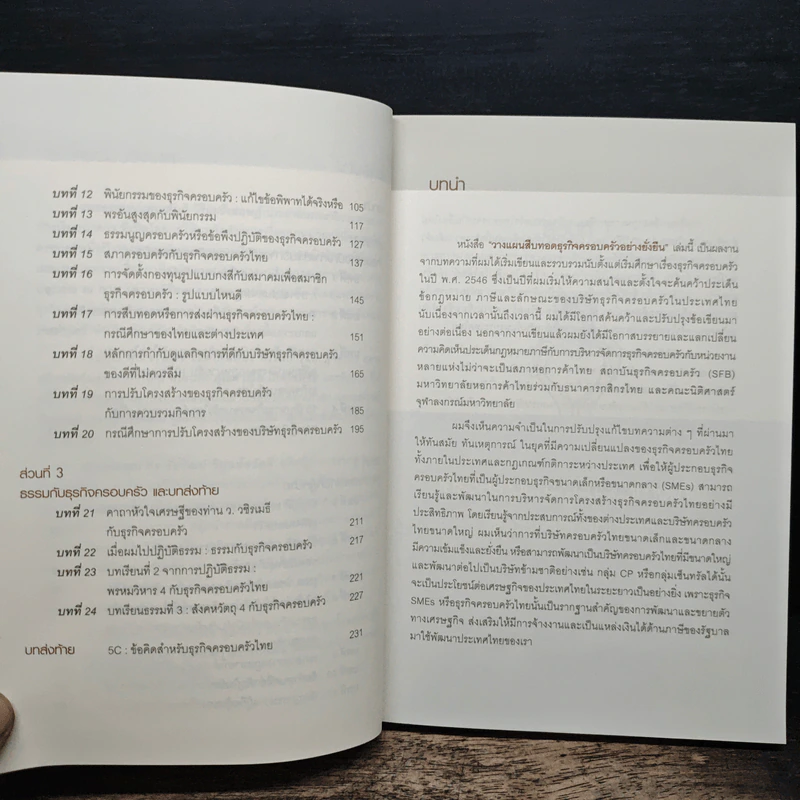 บทที่ 12 พินัยกรรมของธุรกิจครอบครัว : แก้ไขข้อพิพาทได้จริงหรือ 105
บทที่ 13 พรอันสูงสุดกับพินัยกรรม 117
บทที่ 14 ธรรมนูญครอบครัวหรือข้อพึงปฏิบัติของธุรกิจครอบครัว 127
บทที่ 15 สภาครอบครัวกับธุรกิจครอบครัวไทย 137
บทที่ 16 การจัดตั้งกองทุนรูปแบบกงสีกับสมาคมเพื่อสมาชิก
ธุรกิจครอบครัว : รูปแบบไหนดี 145
บทที่ 17 การสืบทอดหรือการส่งผ่านธุรกิจครอบครัวไทย :
กรณีศึกษาของไทยและต่างประเทศ 151
บทที่ 18 หลักการกำกับดูแลกิจการที่ดีกับบริษัทธุรกิจครอบครัว
ของดีที่ไม่ควรลืม 165
บทที่ 19 การปรับโครงสร้างของธุรกิจครอบครัว
กับการควบรวมกิจการ 185
บทที่ 20 กรณีศึกษาการปรับโครงสร้างของบริษัทธุรกิจครอบครัว 195
ส่วนที่ 3
ธรรมกับธุรกิจครอบครัว และบทส่งท้าย
บทที่ 21 คาถาหัวใจเศรษฐีของท่าน ว. วชิรเมธี
กับธุรกิจครอบครัว 211
บทที่ 22 เมื่อผมไปปฏิบัติธรรม : ธรรมกับธุรกิจครอบครัว 217
บทที่ 23 บทเรียนที่ 2 จากการปฏิบัติธรรม :
พรหมวิหาร 4 กับธุรกิจครอบครัวไทย 221
บทที่ 24 บทเรียนธรรมที่ 3 : สังคหวัตถุ 4 กับธุรกิจครอบครัว 227
บทส่งท้าย 5C : ข้อคิดสำหรับธุรกิจครอบครัวไทย 231
บทนำ
หนังสือ "วางแผนสืบทอดธุรกิจครอบครัวอย่างยั่งยืน" เล่มนี้ เป็นผลงาน
จากบทความที่ผมได้เริ่มเขียนและรวบรวมนับตั้งแต่เริ่มศึกษาเรื่องธุรกิจครอบครัว
ในปี พ.ศ. 2546 ซึ่งเป็นปีที่ผมเริ่มให้ความสนใจและตั้งใจจะค้นคว้าประเด็น
ข้อกฎหมาย ภาษีและลักษณะของบริษัทธุรกิจครอบครัวในประเทศไทย
นับเนื่องจากเวลานั้นถึงเวลานี้ ผมได้มีโอกาสค้นคว้าและปรับปรุงข้อเขียนมา
อย่างต่อเนื่อง นอกจากงานเขียนแล้วผมยังได้มีโอกาสบรรยายและแลกเปลี่ยน
ความคิดเห็นประเด็นกฎหมายภาษีกับการบริหารจัดการธุรกิจครอบครัวกับหน่วยงาน
หลายแห่งไม่ว่าจะเป็นสภาหอการค้าไทย สถาบันธุรกิจครอบครัว (SFB)
มหาวิทยาลัยหอการค้าไทยร่วมกับธนาคารกสิกรไทย และคณะนิติศาสตร์
จุฬาลงกรณ์มหาวิทยาลัย
ผมจึงเห็นความจำเป็นในการปรับปรุงแก้ไขบทความต่าง ๆ ที่ผ่านมา
ให้ทันสมัย ทันเหตุการณ์ ในยุคที่มีความเปลี่ยนแปลงของธุรกิจครอบครัวไทย
ทั้งภายในประเทศและกฎเกณฑ์กติการะหว่างประเทศ เพื่อให้ผู้ประกอบธุรกิจ
ครอบครัวไทยที่เป็นผู้ประกอบธุรกิจขนาดเล็กหรือขนาดกลาง (SMEs) สามารถ
เรียนรู้และพัฒนาในการบริหารจัดการโครงสร้างธุรกิจครอบครัวไทยอย่างมี
ประสิทธิภาพ โดยเรียนรู้จากประสบการณ์ทั้งของต่างประเทศและบริษัทครอบครัว
ไทยขนาดใหญ่ ผมเห็นว่าการที่บริษัทครอบครัวไทยขนาดเล็กและขนาดกลาง
มีความเข้มแข็งและยั่งยืน หรือสามารถพัฒนาเป็นบริษัทครอบครัวไทยที่มีขนาดใหญ่
และพัฒนาต่อไปเป็นบริษัทข้ามชาติอย่างเช่น กลุ่ม CP หรือกลุ่มเซ็นทรัลได้นั้น
จะเป็นประโยชน์ต่อเศรษฐกิจของประเทศไทยในระยะยาวเป็นอย่างยิ่ง เพราะธุรกิจ
SMEs หรือธุรกิจครอบครัวไทยนั้นเป็นรากฐานสำคัญของการพัฒนาและขยายตัว
ทางเศรษฐกิจ ส่งเสริมให้มีการจ้างงานและเป็นแหล่งเงินได้ด้านภาษีของรัฐบาล
มาใช้พัฒนาประเทศไทยของเรา